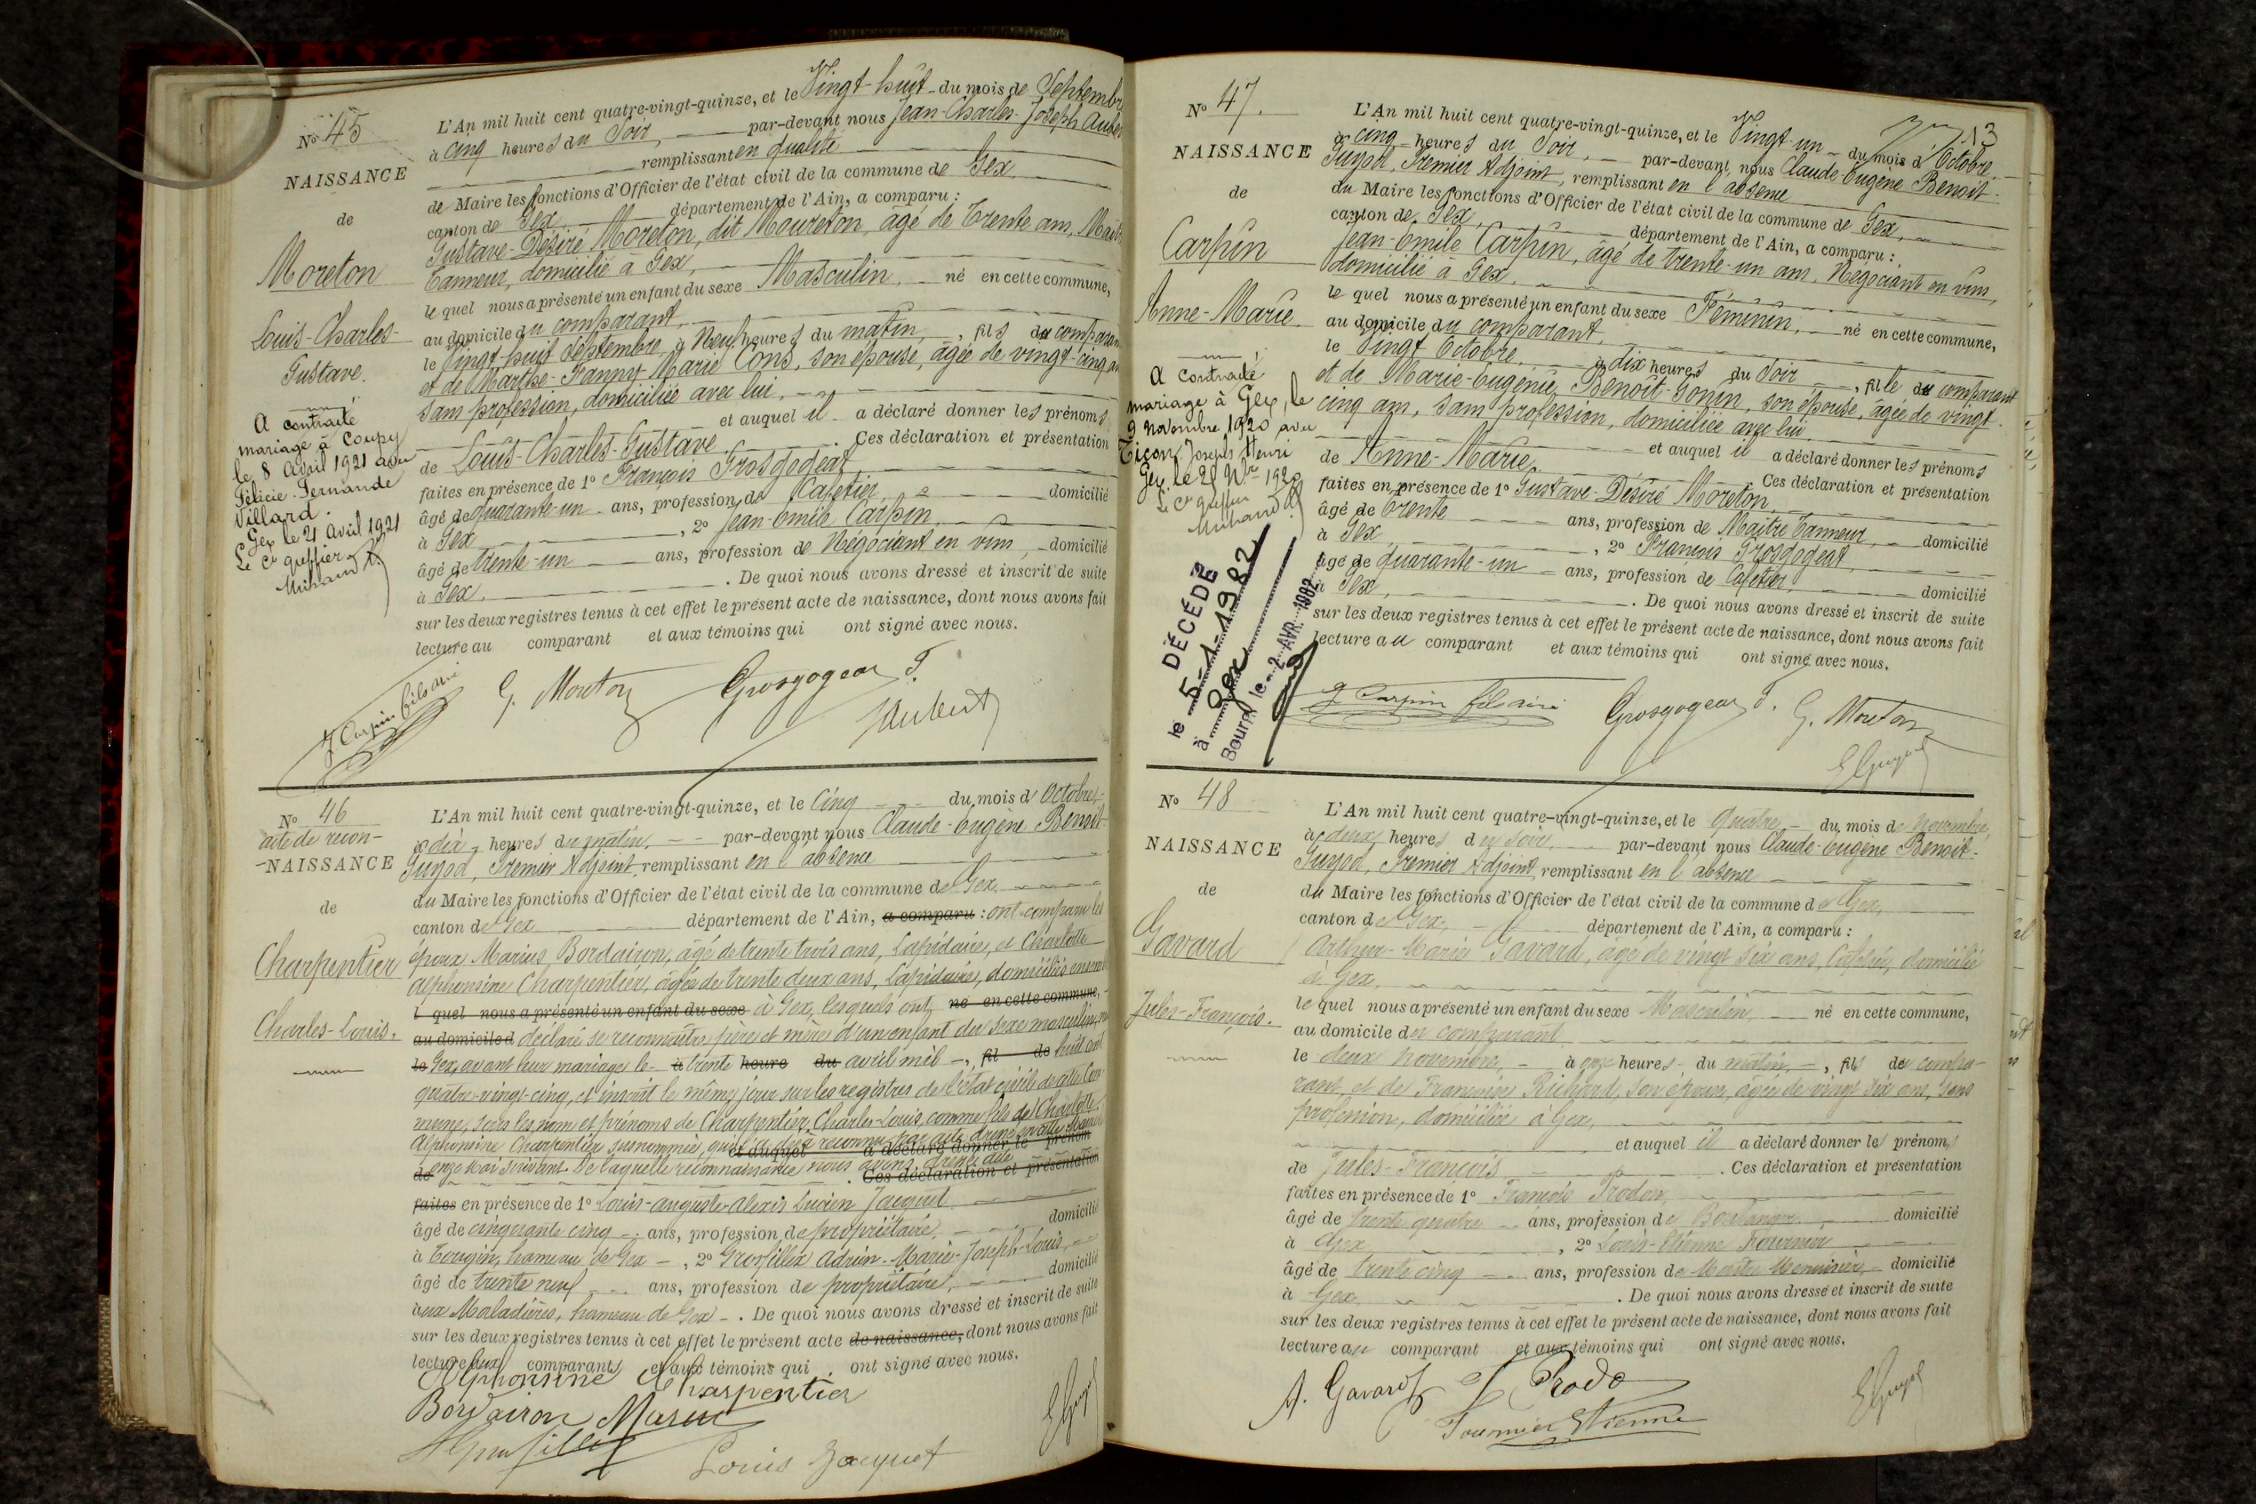 No 45
NAISSANCE
de
Moreton
Louis-Charles-
Gustave.
A contracté
mariage à Coupy
le 8 Avril 1921 avec
Félicie-Fernande
Villard.
Gex le 21 Avril 1921
Le Cis greffier
L'An mil huit cent quatre-vingt-quinze, et le Vingt-huit du mois de Septembre
à cinq heures du Soir, par-devant nous Jean-Charles-Joseph Aubert
remplissant en qualité
de Maire les fonctions d'Officier de l'état civil de la commune de Gex
canton de Gex département de l'Ain, a comparu :
Gustave-Désiré Moreton, dit Moureton, âgé de trente ans, Maître
Tanneur, domicilié à Gex,
le quel nous a présenté un enfant du sexe Masculin, né en cette commune,
au domicile du comparant,
le Vingt-huit Septembre à Neuf heures du matin, fils du comparant
et de Marthe-Fanny-Marie Cons, son épouse, âgée de vingt-cinq ans
sans profession, domiciliée avec lui,
et auquel il a déclaré donner les prénoms
de Louis-Charles-Gustave. Ces déclaration et présentation
faites en présence de 1º François Grosgogeat,
âgé de quarante-un ans, profession de Cafetier, domicilié
à Gex, 2º Jean-Emile Carpin,
âgé de trente-un ans, profession de Négociant en vins, domicilié
à Gex. De quoi nous avons dressé et inscrit de suite
sur les deux registres tenus à cet effet le présent acte de naissance, dont nous avons fait
lecture au comparant et aux témoins qui ont signé avec nous.
J. Carpin fils aîné G. Moreton Grosgogeat F.
JAubert
No 46
acte de recon-
-NAISSANCE
de
Charpentier
Charles-Louis.
L'An mil huit cent quatre-vingt-quinze, et le Cinq du mois d'Octobre,
à dix heures du matin, par-devant nous Claude-Eugène Benoit-
Guyod, Premier Adjoint, remplissant en l'absence
du Maire les fonctions d'Officier de l'état civil de la commune de Gex
canton de Gex département de l'Ain, a comparu : ont comparu les
époux Marius Bordairon, âgé de trente trois ans, Lapidaire, et Charlotte
Alphonsine Charpentier, âgée de trente deux ans, Lapidaire, domiciliés ensemble
l quel nous a présenté un enfant du sexe à Gex, lesquels ont né en cette commune,
au domicile d déclaré se reconnaître père et mère d'un enfant du sexe masculin, né
le Gex, avant leur mariage le à trente heure du avril mil, fil de huit cent
quatre-vingt-cinq, et inscrit le même jour sur les registres de l'état civil de cette Com
mune, sous les nom et prénoms de Charpentier Charles-Louis comme fils de Charlotte
Alphonsine Charpentier surnommée, qui l'a déjà reconnu par acte dressé
et auquel a déclaré donner le prénom
de onze Mai suivant. De laquelle reconnaissance nous avons dressé acte
Ces déclaration et présentation
faites en présence de 1º Louis-Auguste-Alexis Lucien Jacquet
âgé de cinquante cinq ans, profession de propriétaire, domicilié
à Tougin, hameau de Gex, 2º Grosfillex Adrien-Marie-Joseph-Louis,
âgé de trente neuf ans, profession de propriétaire, domicilié
aux Maladières, hameau de Gex. De quoi nous avons dressé et inscrit de suite
sur les deux registres tenus à cet effet le présent acte de naissance, dont nous avons fait
lecture aux comparants et aux témoins qui ont signé avec nous.
Alphonsine Charpentier
Bordairon Marius
AGrosfillex Louis Jacquet EGuyod
No 47.
NAISSANCE
de
Carpin
Anne-Marie
A contracté
mariage à Gex, le
9 novembre 1920 avec
Tiçon Joseph Henri
Gex, le 25 Nbre 1920
Le Cis greffier
DÉCÉDÉ
le 5-1-1982
à Gex
Bourg le 2 AVR. 1982
13
L'An mil huit cent quatre-vingt-quinze, et le Vingt-un du mois d'Octobre,
à cinq heures du Soir, par-devant nous Claude-Eugène Benoit-
Guyod, Premier Adjoint, remplissant en l'absence
du Maire les fonctions d'Officier de l'état civil de la commune de Gex,
canton de Gex, département de l'Ain, a comparu :
Jean-Emile Carpin, âgé de trente-un ans, Négociant en vins,
domicilié à Gex,
le quel nous a présenté un enfant du sexe Féminin, né en cette commune,
au domicile du comparant,
le Vingt Octobre, à dix heures du Soir, fille du comparant
et de Marie-Eugénie Benoît-Gonin, son épouse, âgée de vingt-
cinq ans, sans profession, domiciliée avec lui,
et auquel il a déclaré donner les prénoms
de Anne-Marie. Ces déclaration et présentation
faites en présence de 1º Gustave-Désiré Moreton,
âgé de trente ans, profession de Maître Tanneur, domicilié
à Gex, 2º François Grosgogeat,
âgé de quarante-un ans, profession de Cafetier, domicilié
à Gex, . De quoi nous avons dressé et inscrit de suite
sur les deux registres tenus à cet effet le présent acte de naissance, dont nous avons fait
lecture au comparant et aux témoins qui ont signé avec nous.
J Carpin fils aîné Grosgogeat F. G. Moreton
EGuyod
No 48
NAISSANCE
de
Gavard
Jules-François.
L'An mil huit cent quatre-vingt-quinze, et le Quatre du mois de Novembre,
à deux heures du soir, par-devant nous Claude-Eugène Benoit-
Guyod, Premier Adjoint, remplissant en l'absence
du Maire les fonctions d'Officier de l'état civil de la commune de Gex,
canton de Gex, département de l'Ain, a comparu :
Arthur-Marie Gavard, âgé de vingt six ans, Cafetier, domicilié
à Gex,
le quel nous a présenté un enfant du sexe Masculin, né en cette commune,
au domicile du comparant,
le deux Novembre, à onze heures du matin, fils du compa-
rant, et de Françoise Richard, son épouse, âgée de vingt six ans, sans
profession, domiciliée à Gex,
et auquel il a déclaré donner les prénoms
de Jules-François. Ces déclaration et présentation
faites en présence de 1º François Prodon,
âgé de trente quatre ans, profession de Boulanger, domicilié
à Gex, 2º Louis-Etienne Fournier
âgé de trente cinq ans, profession de Maître Menuisier, domicilié
à Gex. De quoi nous avons dressé et inscrit de suite
sur les deux registres tenus à cet effet le présent acte de naissance, dont nous avons fait
lecture au comparant et aux témoins qui ont signé avec nous.
A. Gavard F Prodo EGuyod
Fournier Etienne